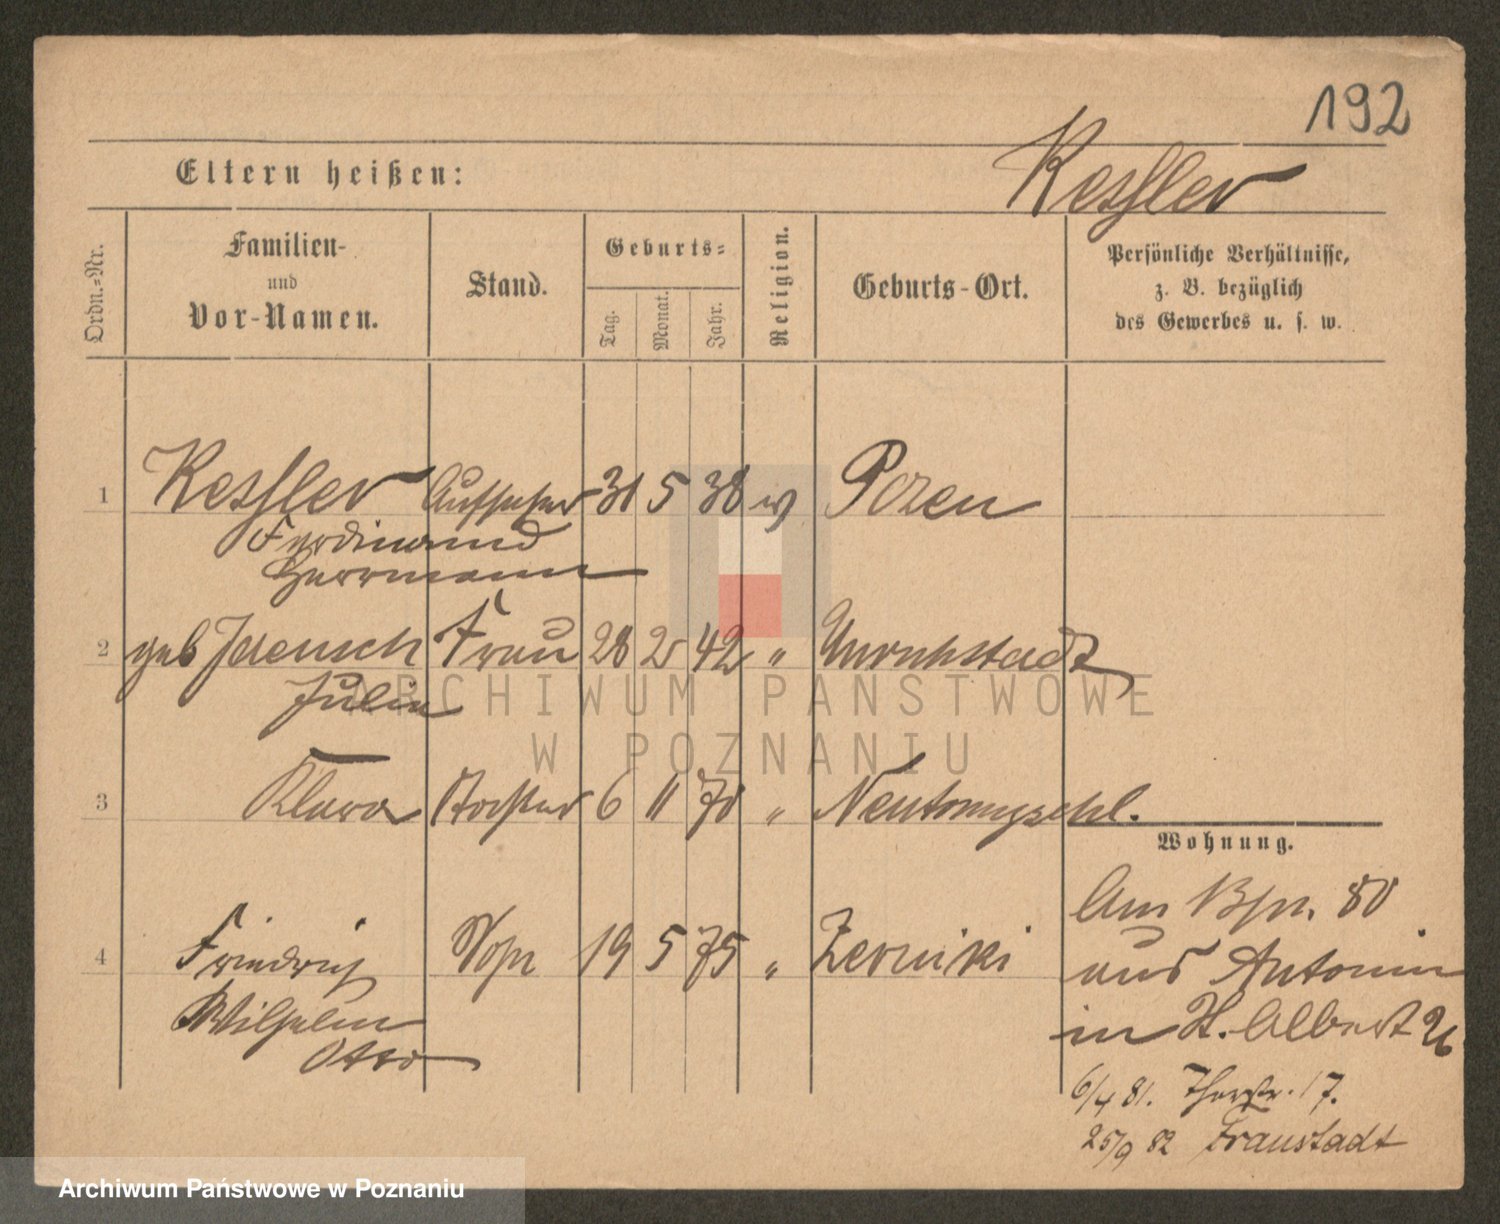 192
Eltern heißen:
Kessler
Ordn.-Nr.
Familien-
und
Vor-Namen.
Stand.
Geburts-
Tag.
Monat.
Jahr.
Religion.
Geburts-Ort.
Persönliche Verhältnisse,
z. B. bezüglich
des Gewerbes u. s. w.
1 Kessler Aufseher 31 5 38 Posen
Ferdinand
Herrmann
2 geb Jaensch Frau 28 2 42 " Unruhstadt
Julie
3 Klara Tochter 6 11 70 " Neutomyschl.
4 Friedrich Sohn 19 5 75 " Zerniki
Wilhelm
Otto
Wohnung.
Am 80
aus Antonin
in H. Albert 26
6/4 81. Thorstr. 17.
25/9 82 Fraustadt
ARCHIWUM PAŃSTWOWE
W POZNANIU
Archiwum Państwowe w Poznaniu